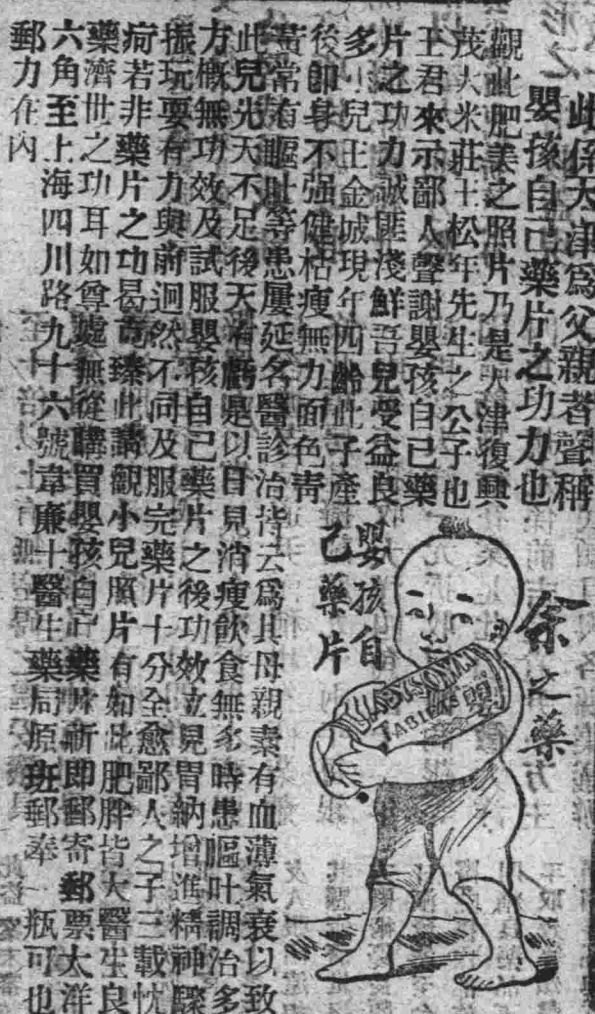 此係天津爲父親者聲稱
嬰孩自己藥片之功力也
觀此肥美之照片乃是天津復興
茂大米莊王松年先生之公子也
王君來示鄙人聲謝嬰孩自己藥
片之功力誠匪淺鮮吾兒受益良
多小兒王金城現年四齡此子產
後卽身不强健枯瘦無力面色靑
黃常有嘔吐等患屢延名醫診治皆云爲其母親素有血薄氣衰以致
此兒先天不足後天有虧是以日見消瘦飲食無多時患嘔吐調治多
方槪無功效及試服嬰孩自己藥片之後功效立見胃納增進精神驟
振玩耍有力與前迥然不同及服完藥片十分全愈鄙人之子三載忱
疴若非藥片之功曷克臻此請觀小兒照片有如此肥胖皆大醫生良
藥濟世之功耳如尊處無從購買嬰孩自己藥片祈卽郵寄郵票大洋
六角至上海四川路九十六號韋廉士醫生藥局原班郵奉一瓶可也
郵力在內
余之藥
嬰孩自
己藥片
BABY'S OWN
TABLETS
嬰